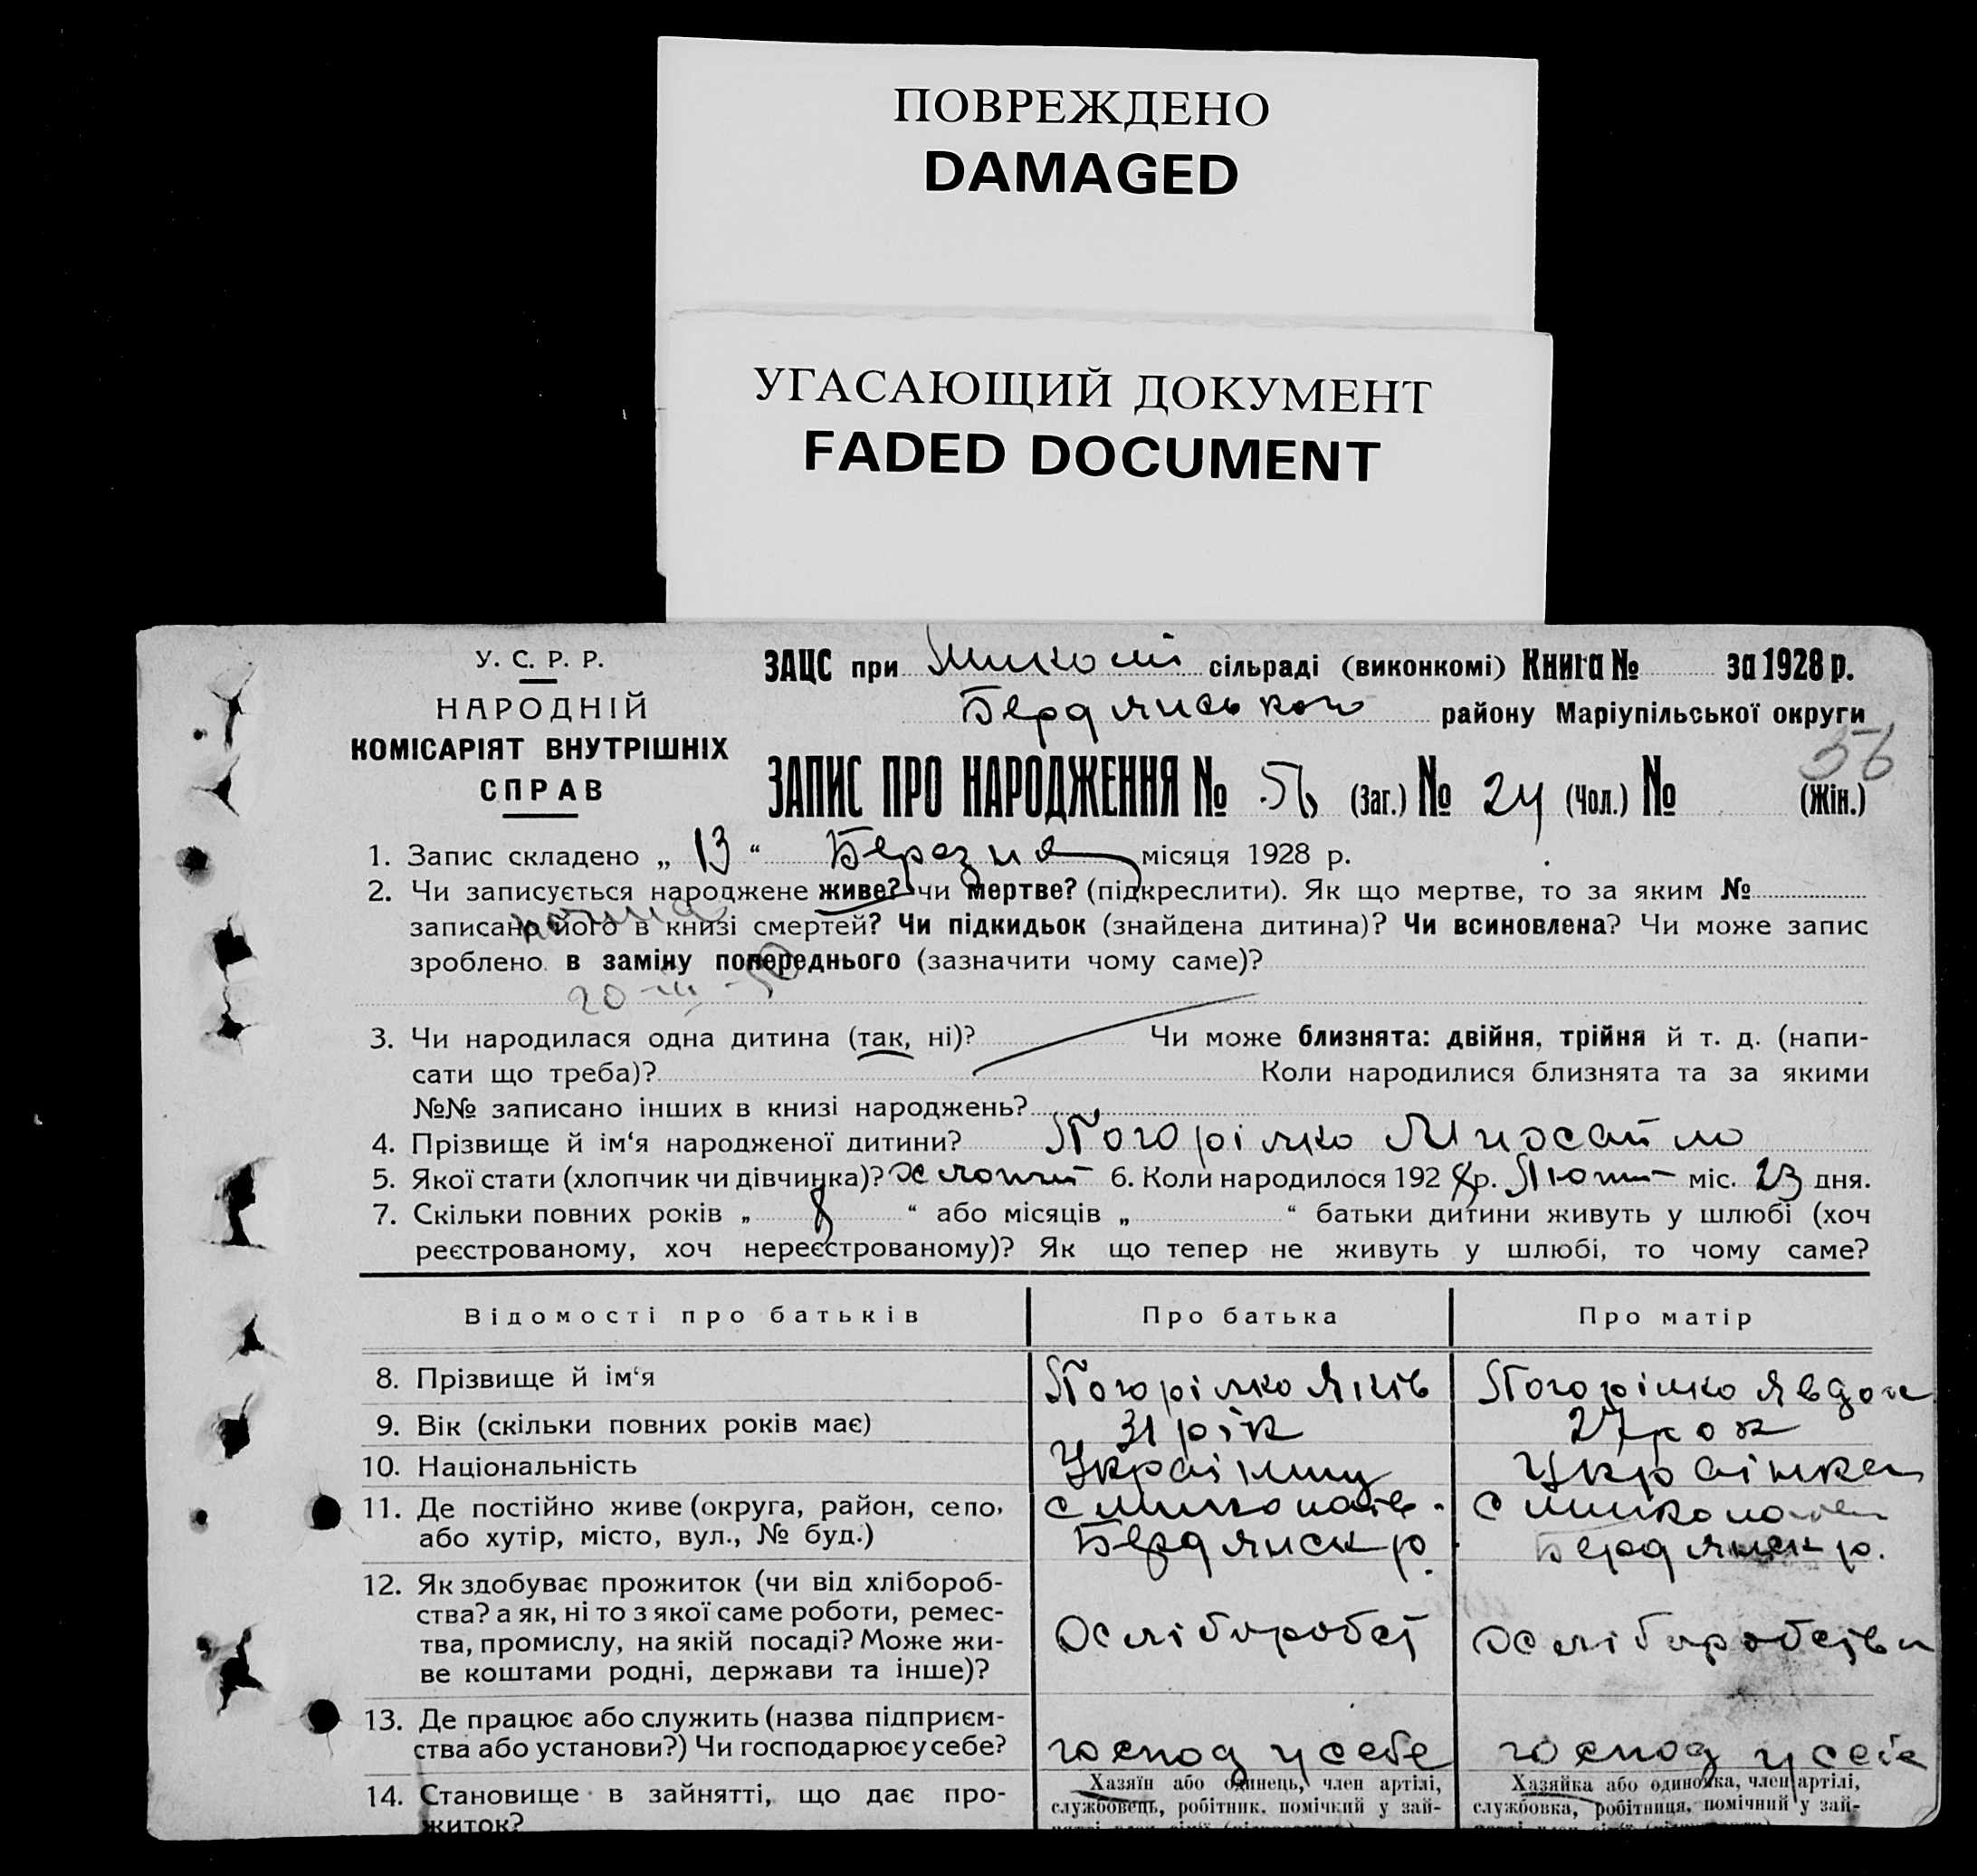 ПОВРЕЖДЕНО
DAMAGED
УГАСАЮЩИЙ ДОКУМЕНТ
FADED DOCUMENT
У. С. Р. Р.
НАРОДНІЙ
КОМІСАРІЯТ ВНУТРІШНІХ
СПРАВ
ЗАЦС при сільраді (виконкомі) Книга № за 1928 р.
Бердянського району Маріупільської округи
56
ЗАПИС ПРО НАРОДЖЕННЯ № 56 (Заг.) № 24 (Чол.) № (Жін.)
1. Запис складено „ 13 “ Березня місяця 1928 р.
2. Чи записується народжене живе? чи мертве? (підкреслити). Як що мертве, то за яким №
записано його в книзі смертей? Чи підкидьок (знайдена дитина)? Чи всиновлена? Чи може запис
зроблено в заміну попереднього (зазначити чому саме)?
20-III-50
3. Чи народилася одна дитина (так, ні)? Чи може близнята: двійня, трійня й т. д. (напи-
сати що треба)? Коли народилися близнята та за якими
№№ записано інших в книзі народжень?
4. Прізвище й ім‘я народженої дитини? Погорілко Михайло
5. Якої стати (хлопчик чи дівчинка)? 6. Коли народилося 1928 р. Лютий міс. 23 дня.
7. Скільки повних років „ 8 “ або місяців „ “ батьки дитини живуть у шлюбі (хоч
реєстрованому, хоч нереєстрованому)? Як що тепер не живуть у шлюбі, то чому саме?
Відомості про батьків Про батька Про матір
8. Прізвище й ім‘я Погорілко Яків Погорілко Явдох
9. Вік (скільки повних років має) 31 рік 27 рок
10. Національність Українец Українка
11. Де постійно живе (округа, район, село, с Миколаїв. с
або хутір, місто, вул., № буд.) Бердянск р. Бердянск р.
12. Як здобуває прожиток (чи від хлібороб-
ства? а як, ні то з якої саме роботи, ремес-
тва, промислу, на якій посаді? Може жи-
ве коштами родні, держави та інше)?
Хліборобст Хліборобства
13. Де працює або служить (назва підприєм-
ства або установи?) Чи господарює у себе? господ у себе господ у себе
14. Становище в зайнятті, що дає про-
житок?
Хазяїн або одинець, член артілі,
службовець, робітник, помічний у зай-
Хазяйка або одиночка, член артілі,
службовка, робітниця, помічний у зай-